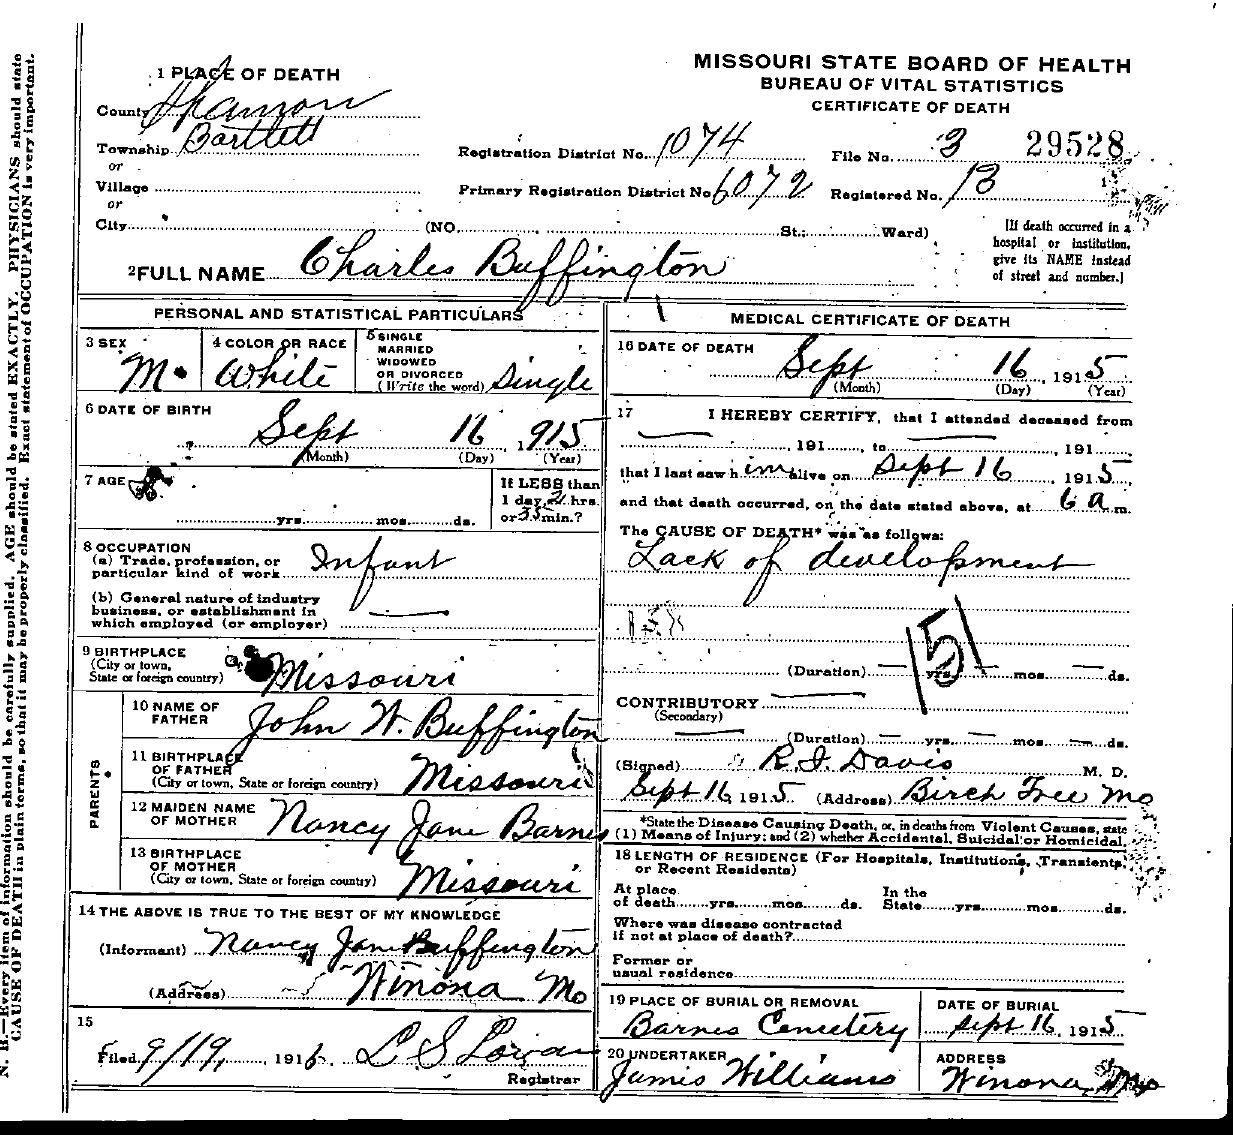 MISSOURI STATE BOARD OF HEALTH
BUREAU OF VITAL STATISTICS
CERTIFICATE OF DEATH
1 PLACE OF DEATH
County Shannon
Township Bartlett
or
Village
or
City (NO. St.; Ward)
Registration District No. 1074 File No. 3 29528
Primary Registration District No 6072 Registered No. 13
[If death occurred in a
hospital or institution,
give its NAME instead
of street and number.]
2 FULL NAME Charles Buffington
PERSONAL AND STATISTICAL PARTICULARS
3 SEX M.
4 COLOR OR RACE White
5 SINGLE
MARRIED
WIDOWED
OR DIVORCED
(Write the word) Single
6 DATE OF BIRTH
Sept 16, 1915
(Month) (Day) (Year)
7 AGE
yrs. mos. ds.
If LESS than
1 day, 2 hrs.
or 35 min.?
8 OCCUPATION
(a) Trade, profession, or
particular kind of work Infant
(b) General nature of industry
business, or establishment in
which employed (or employer)
9 BIRTHPLACE
(City or town,
State or foreign country) Missouri
PARENTS
10 NAME OF
FATHER John W. Buffington
11 BIRTHPLACE
OF FATHER
(City or town, State or foreign country) Missouri
12 MAIDEN NAME
OF MOTHER Nancy Jane Barnes
13 BIRTHPLACE
OF MOTHER
(City or town, State or foreign country) Missouri
14 THE ABOVE IS TRUE TO THE BEST OF MY KNOWLEDGE
(Informant) Nancy Jane Buffington
(Address) Winona Mo
15
Filed 9/19, 191 L S
Registrar
MEDICAL CERTIFICATE OF DEATH
16 DATE OF DEATH
Sept 16, 1915
(Month) (Day) (Year)
17 I HEREBY CERTIFY, that I attended deceased from
191 , to , 191 ,
that I last saw him alive on Sept 16 1915,
and that death occurred, on the date stated above, at 6 a m.
The CAUSE OF DEATH* was as follows:
Lack of development
151
(Duration) yrs. mos. ds.
CONTRIBUTORY
(Secondary)
(Duration) yrs. mos. ds.
(Signed) R. I. Davis M. D.
Sept 16, 1915 (Address) Birch Tree Mo
*State the Disease Causing Death, or, in deaths from Violent Causes, state
(1) Means of Injury; and (2) whether Accidental, Suicidal or Homicidal.
18 LENGTH OF RESIDENCE (For Hospitals, Institutions, Transients,
or Recent Residents)
At place In the
of death yrs. mos. ds. State yrs. mos. ds.
Where was disease contracted
if not at place of death?
Former or
usual residence
19 PLACE OF BURIAL OR REMOVAL DATE OF BURIAL
Barnes Cemetery Sept 16 1915
20 UNDERTAKER ADDRESS
James Williams Winona, Mo
N. B.—Every item of information should be carefully supplied. AGE should be stated EXACTLY. PHYSICIANS should state
CAUSE OF DEATH in plain terms, so that it may be properly classified. Exact statement of OCCUPATION is very important.